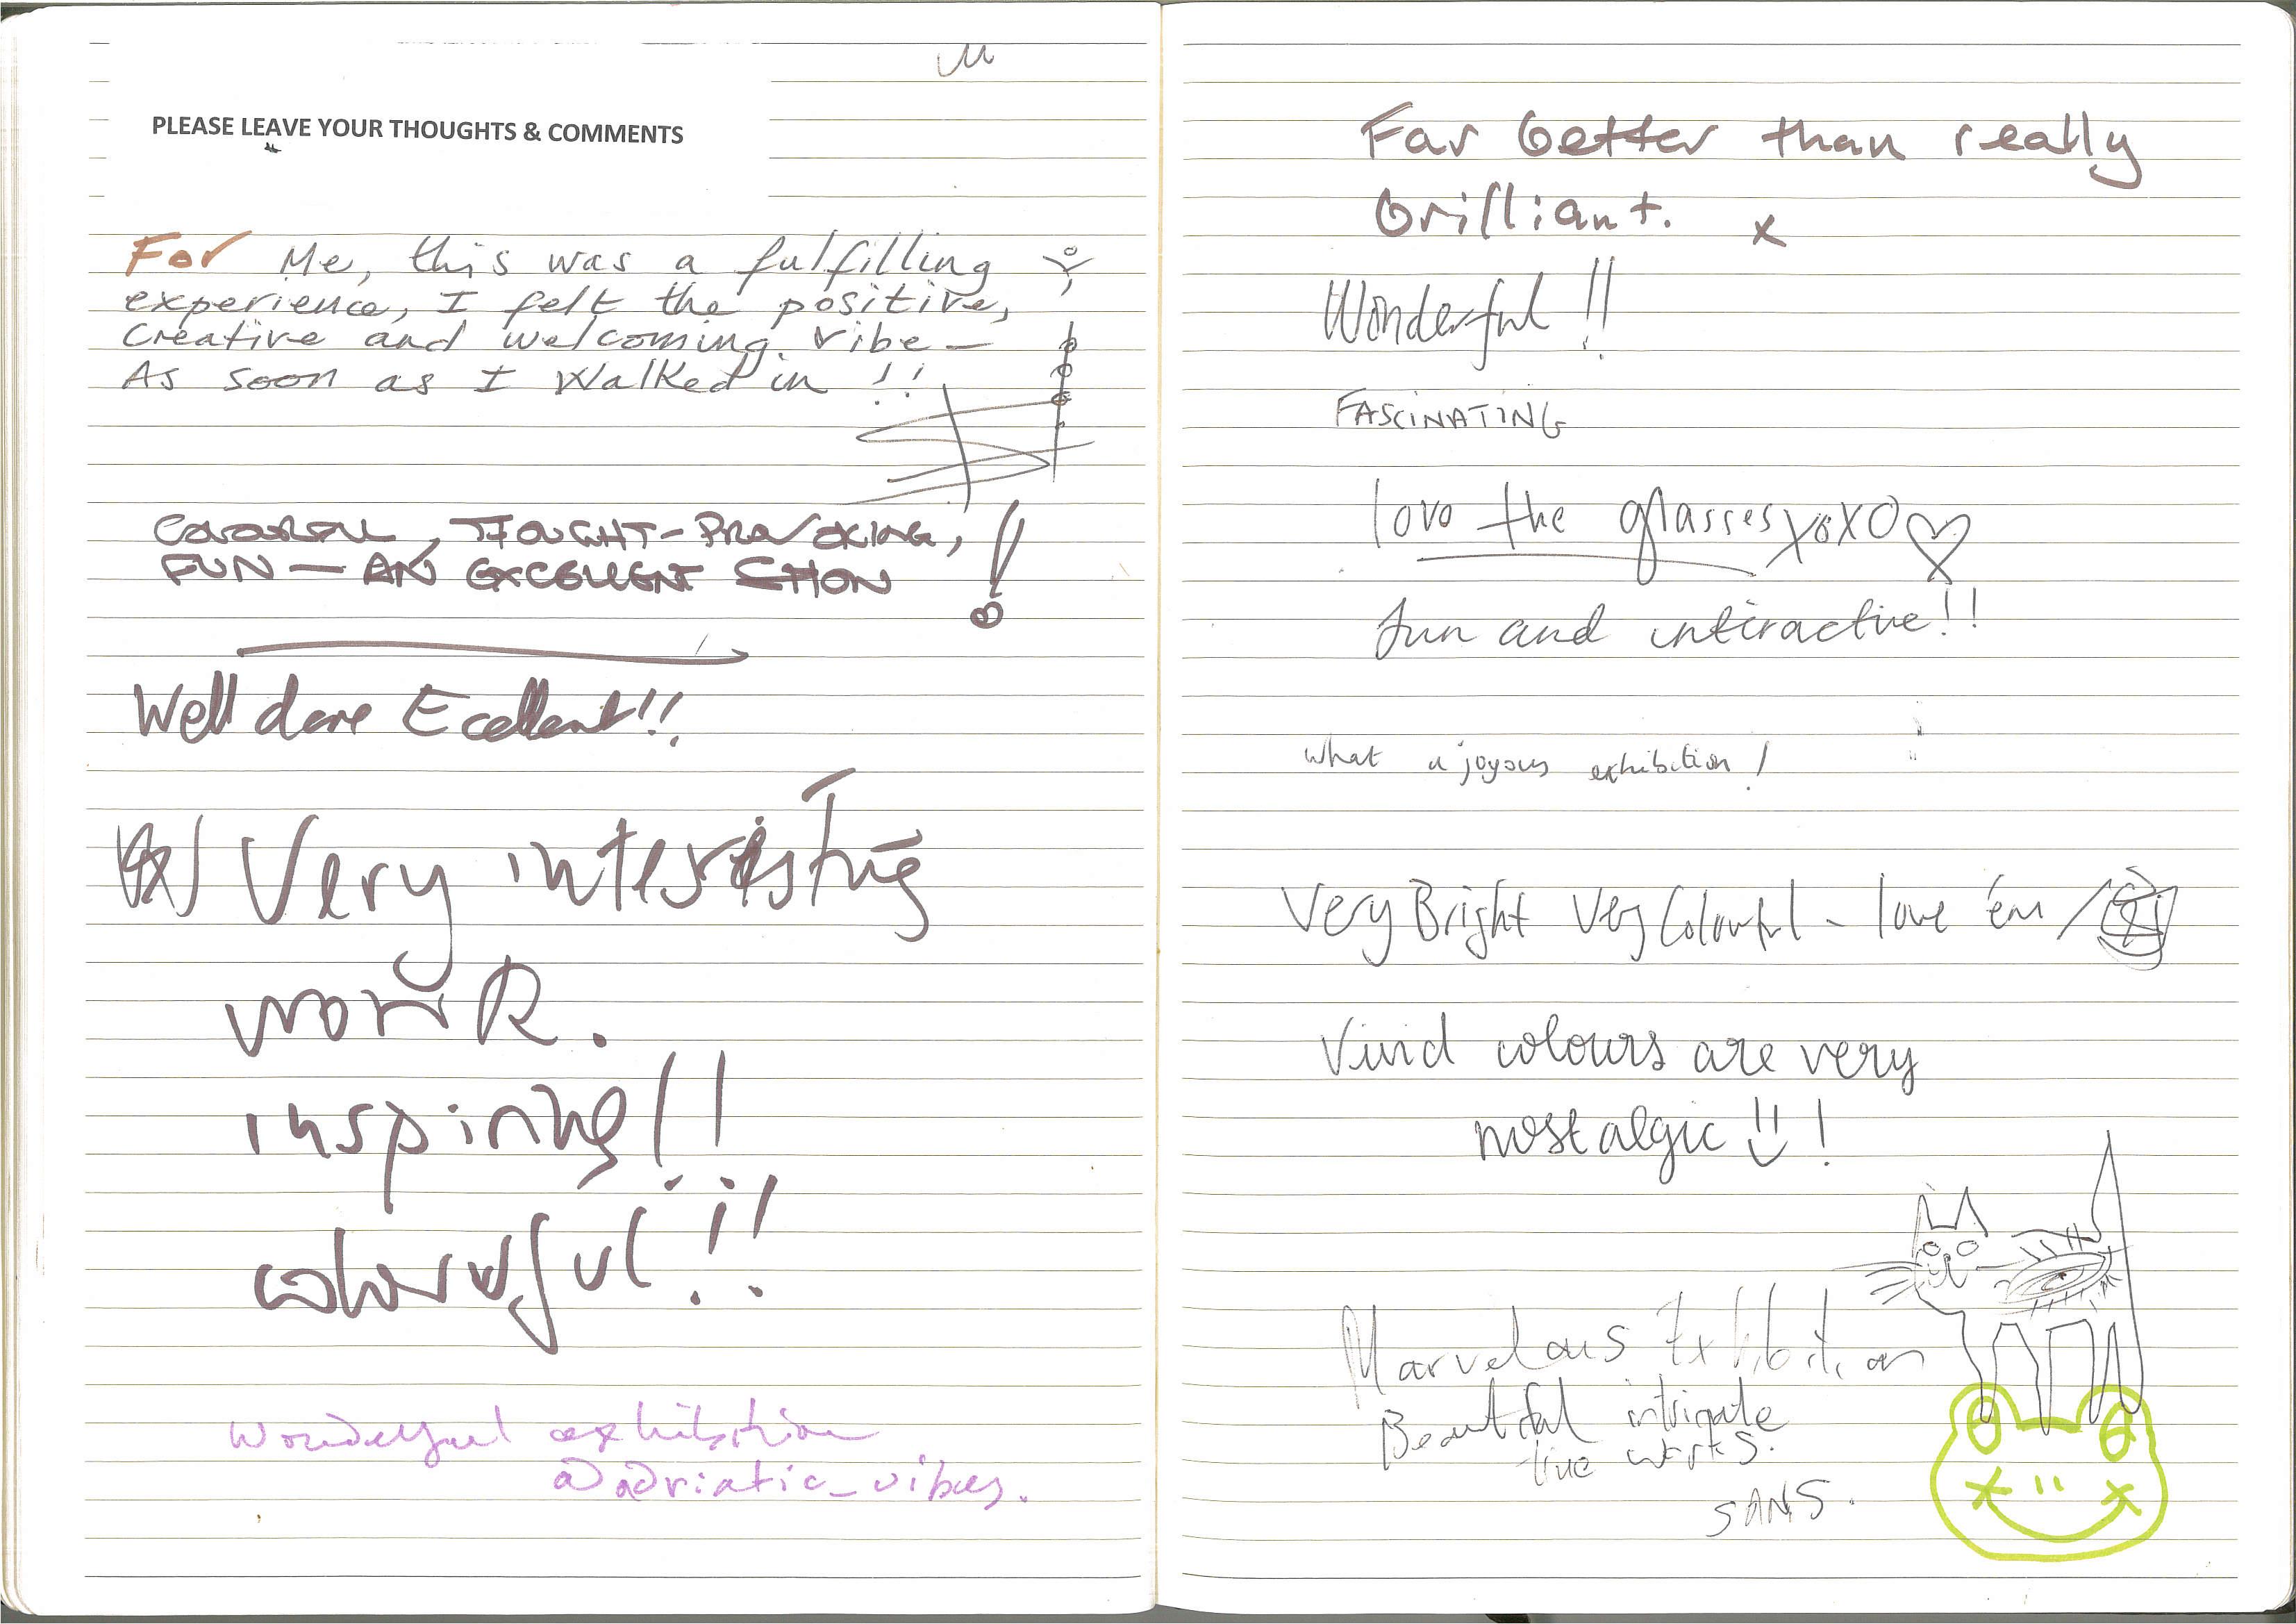 PLEASE LEAVE YOUR THOUGHTS & COMMENTS
For Me, this was a fulfilling
experience, I felt the positive,
creative and welcoming vibe —
As soon as I walked in !!
COLOURFUL, THOUGHT-PROVOKING,
FUN — AN EXCELLENT SHOW !
Well done Ecellent!!
Very interesting
work.
inspiring!!
colourful!!!
Wonderful exhibition
@adriatic_vibes.
Far better than really
brilliant. x
Wonderful!!
FASCINATING
love the glasses xoxo
fun and interactive!!
what a joyous exhibition!
Very Bright Very Colourful - love 'em
Vivid colours are very
nostalgic !
Marvelous Exhibition
Beautiful intricate
line works.
SANS.